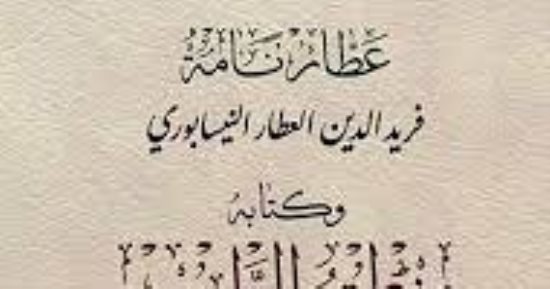 عطار نامة
فريد الدين العطار النيسابوري
وكتابه